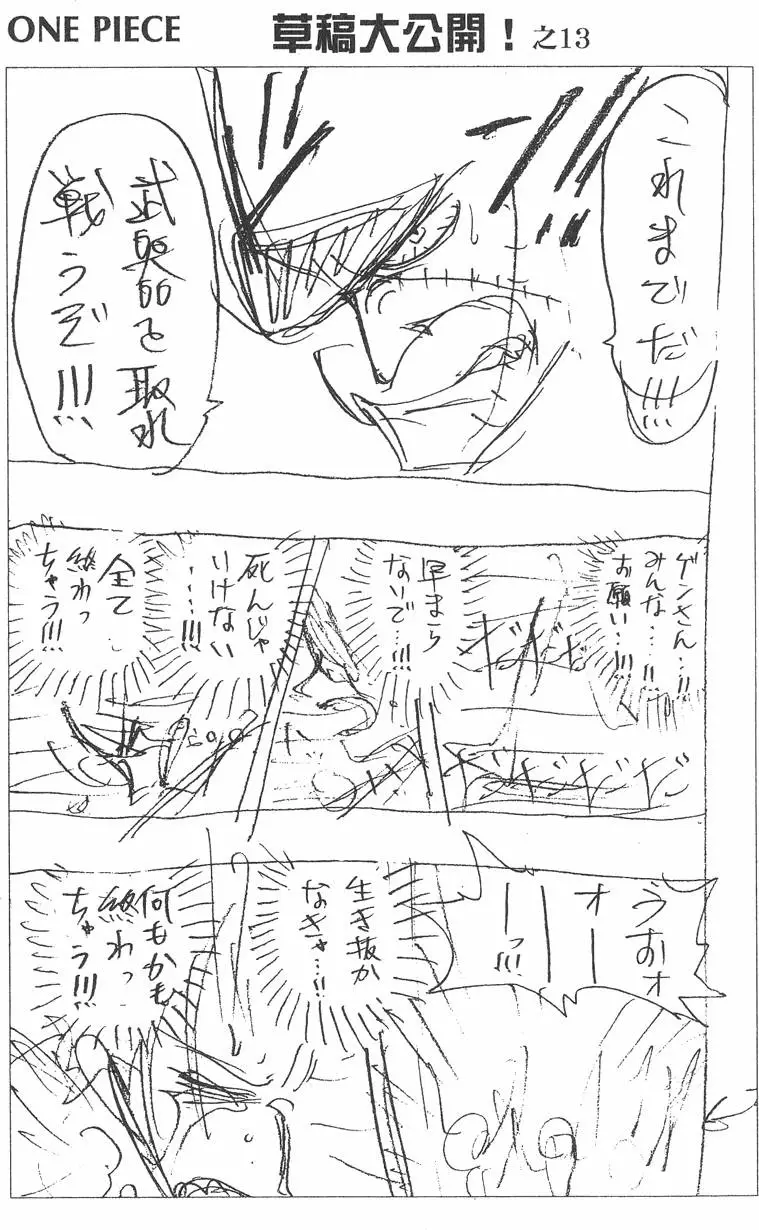 ONE PIECE
草稿大公開！之13
これまでだ!!!
武器を取れ
戦うぞ!!!
ゲンさん…!!
みんな…!!
お願い…!!!
早まら
ないで…!!!
死んじゃ
いけない
…!!!
全て
終わっ
ちゃう!!!
うおォ
オー
ーーっ!!!
生き抜か
なきゃ…!!
何もかも
終わっ
ちゃう!!!